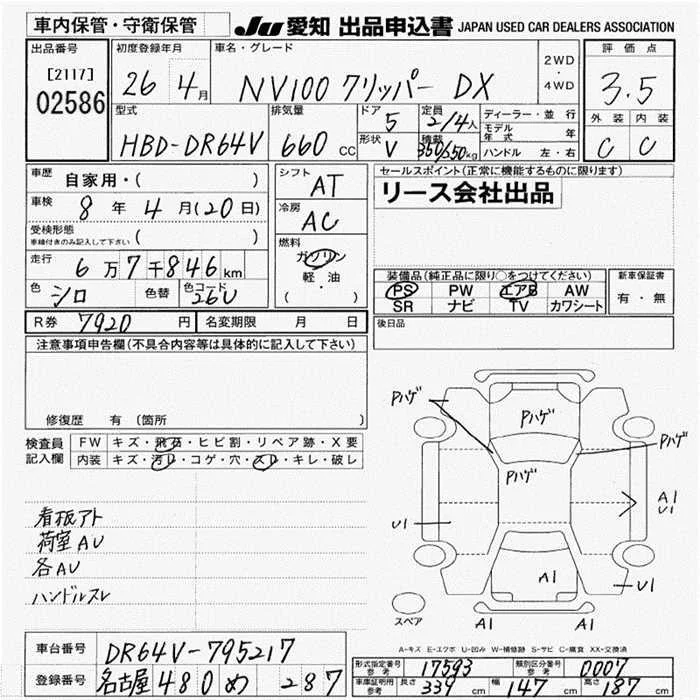 車内保管・守衛保管
JU 愛知 出品申込書 JAPAN USED CAR DEALERS ASSOCIATION
出品番号
[2117]
02586
初度登録年月
26 4月
車名・グレード
NV100 クリッパー DX
2WD
・
4WD
評価点
3.5
外装 内装
C C
型式
HBD-DR64V
排気量
660 CC
ドア
5
形状
V
定員
2/4人
積載
350/350kg
ディーラー・並行
モデル年式 年
ハンドル 左・右
車歴
自家用・( )
車検
8年 4月(20日)
受検形態
車検付きのみ記入して下さい ( )
走行
6万7千846km
色
シロ
色替
色コード
26U
シフト
AT
冷房
AC
燃料
ガソリン
軽・油
・
( )
セールスポイント(正常に機能するものに限ります)
リース会社出品
装備品(純正品に限り○をつけてください)
PS PW エアB AW
SR ナビ TV カワシート
新車保証書
有・無
後日品
R券 7920円
名変期限 月 日
注意事項申告欄(不具合内容等は具体的に記入して下さい)
修復歴 有(箇所 )
検査員記入欄
FW キズ・飛石・ヒビ割・リペア跡・X要
内装 キズ・汚レ・コゲ・穴・スレ・キレ・破レ
看板アト
荷室AU
各AU
ハンドルスレ
Pハゲ
Pハゲ
Pハゲ
Pハゲ
U1
A1
U1
A1
U1
スペア
A1
A1
A-キズ E-エクボ U-凹み W-補修跡 S-サビ C-腐食 XX-交換済
車台番号 DR64V-795217
登録番号 名古屋 480 め 287
形式指定番号 参考 17593
類別区分番号 参考 0007
車庫証明用 参考 長さ 339cm 幅 147cm 高さ 187cm